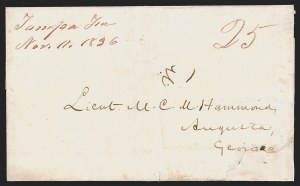 Tampa Fla
Nov. 11. 1836
25
Lieut M. C. M Hammond,
Augusta,
Georgia